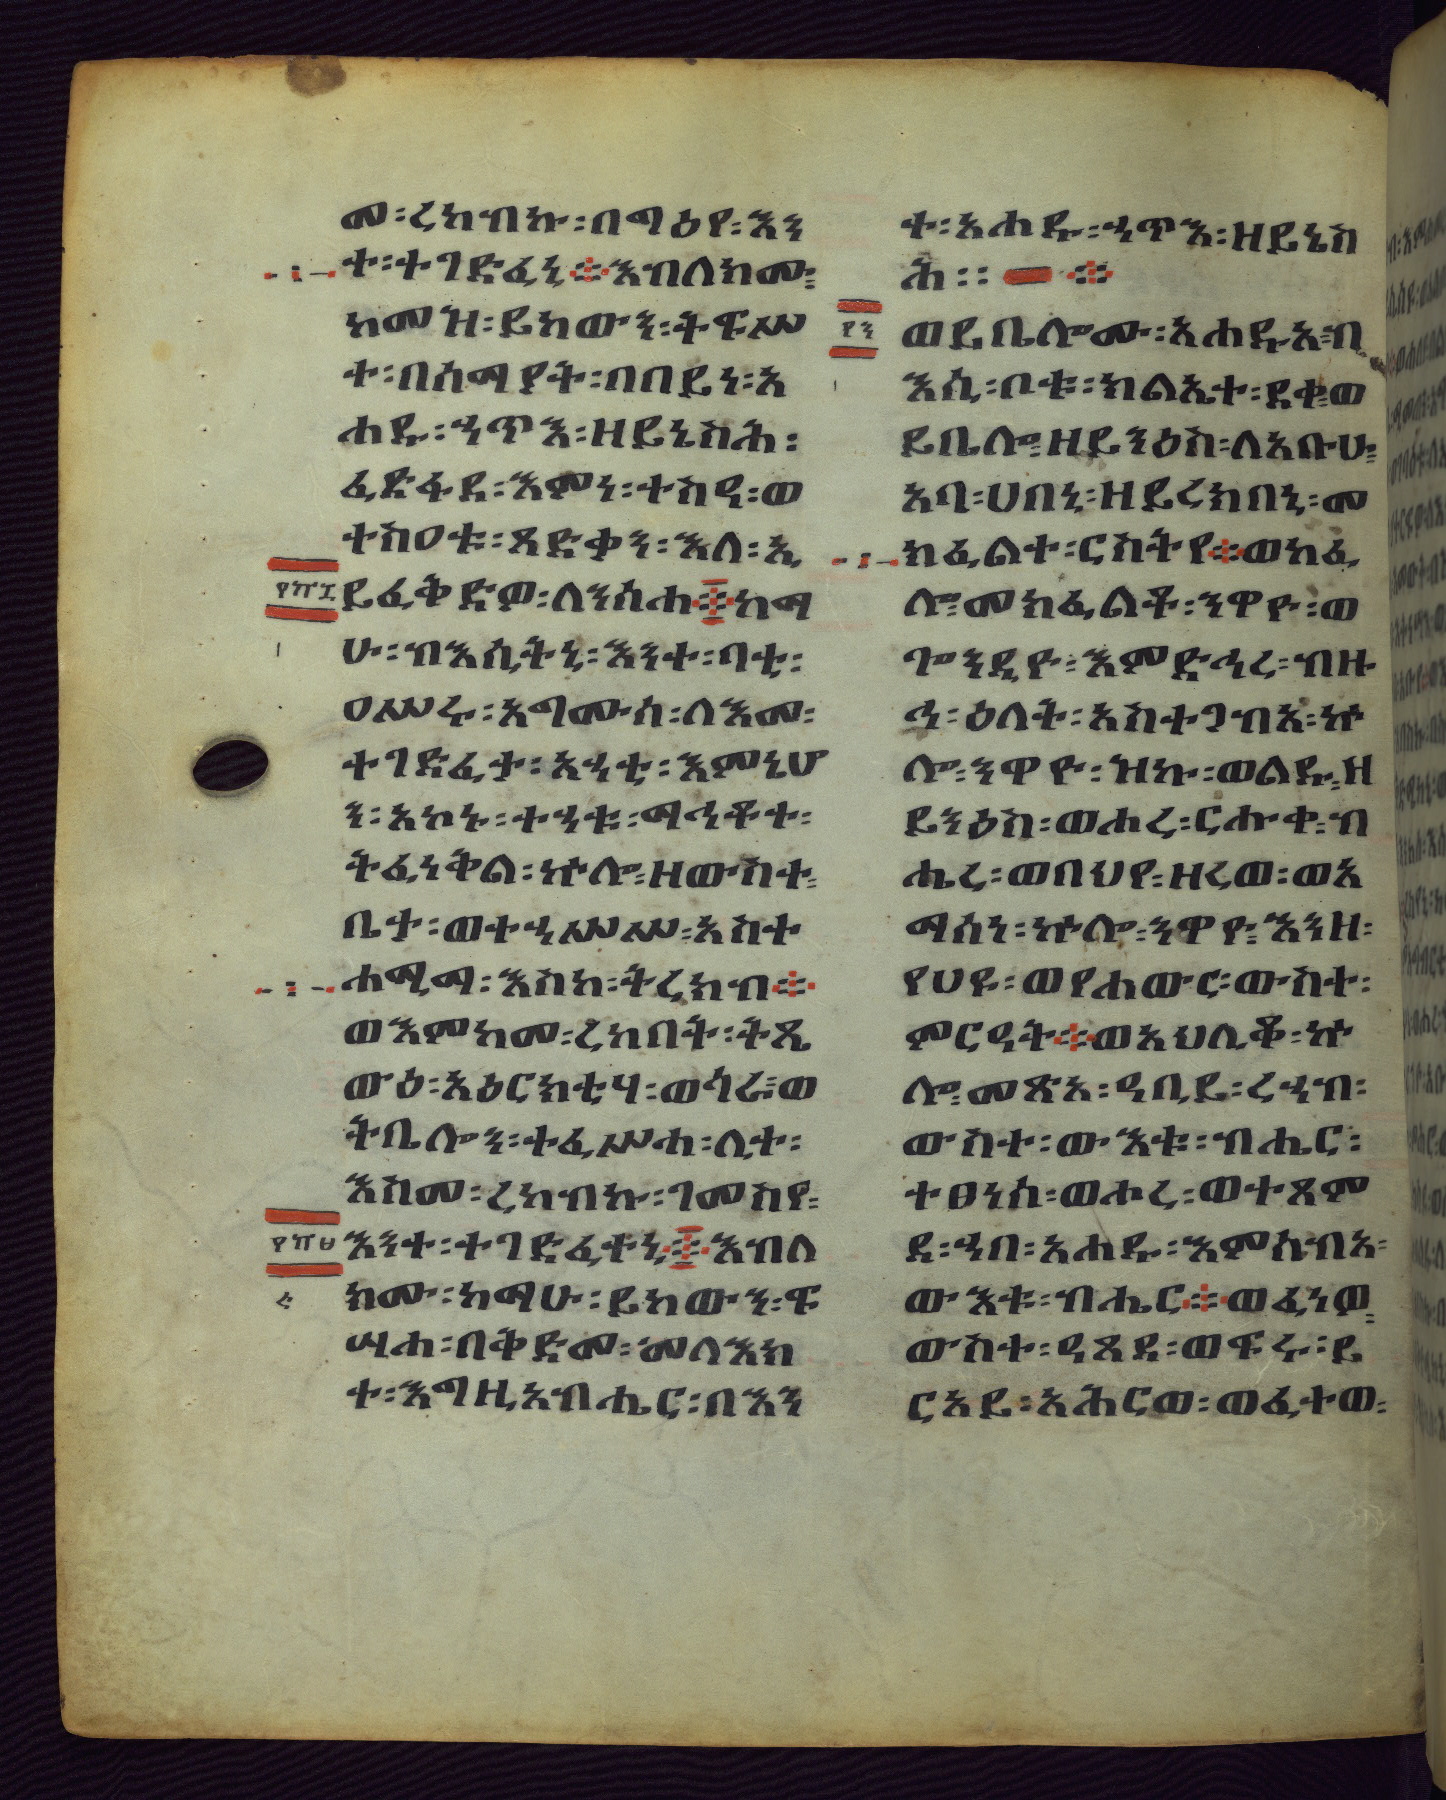 መ፡ረከብኩ፡በግዕየ፡እን
ተ፡ተገድፈኒ፨እብለክሙ፡
ከመዝ፡ይከውን፡ትፍሥ
ተ፡በሰማያት፡በበይነ፡አ
ሐዱ፡ኃጥእ፡ዘይኔስሕ፡
ፈድፋደ፡እምነ፡ተስዓ፡ወ
ተስዐቱ፡ጻድቃን፡እለ፡ኢ
ይፈቅድዎ፡ለንስሐ፨ከማ
ሁ፡ብእሲትኒ፡እንተ፡ባቲ፡
ዐሥሩ፡አግሙስ፡ለእመ፡
ተገድፈታ፡አሓቲ፡እምኔሆ
ን፡አኮኑ፡ተኃቱ፡ማኅቶተ፡
ትፈነቅል፡ኵሎ፡ዘውስተ፡
ቤታ፡ወተኃሥሥ፡አስተ
ሐሚማ፡እስከ፡ትረክብ፨
ወእምከመ፡ረከበት፡ትጼ
ውዕ፡አዕርክቲሃ፡ወጎራ፡ወ
ትቤሎን፡ተፈሥሓ፡ሊተ፡
እስመ፡ረከብኩ፡ገመስየ፡
እንተ፡ተገድፈተኒ፨እብለ
ክሙ፡ከማሁ፡ይከውን፡ፍ
ሣሐ፡በቅድመ፡መላእክ
ተ፡እግዚአብሔር፡በእን
ተ፡አሐዱ፡ኃጥእ፡ዘይኔስ
ሕ፡፡ ፨
ወይቤሎሙ፡አሐዱ፡ብ
እሲ፡ቦቱ፡ክልኤተ፡ደቀ፡ወ
ይቤሎ፡ዘይንዕስ፡ለአቡሁ፡
አባ፡ሀበኒ፡ዘይረክበኒ፡መ
ክፈልተ፡ርስትየ፨ወከፈ
ሎ፡መክፈልቶ፡ንዋዮ፡ወ
ጐንዲዮ፡እምድኅረ፡ብዙ
ኅ፡ዕለት፡አስተጋብአ፡ኵ
ሎ፡ንዋዮ፡ዝኩ፡ወልዱ፡ዘ
ይንዕስ፡ወሐረ፡ርሑቀ፡ብ
ሔረ፡ወበህየ፡ዘረወ፡ወአ
ማሰነ፡ኵሎ፡ንዋዮ፡እንዘ፡
የሀዩ፡ወየሐውር፡ውስተ፡
ምርዓት፨ወአህሊቆ፡ኵ
ሎ፡መጽአ፡ዓቢይ፡ረኃብ፡
ውስተ፡ውእቱ፡ብሔር፡
ተፀነሰ፡ወሖረ፡ወተጸም
ደ፡ኃበ፡አሐዱ፡እምሰብአ፡
ውእቱ፡ብሔር፨ወፈነዎ፡
ውስተ፡ዓጸደ፡ወፍሩ፡ይ
ርአይ፡አሕርወ፡ወፈተወ፡
፻፹፰
፩
፻፹፱
፪
፻፺
፩